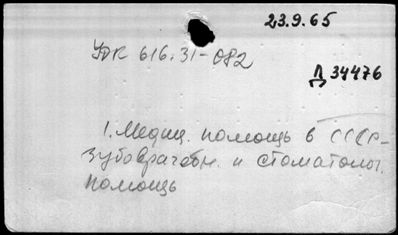 23.9.65
УДК 616.31-082
Д 34476
1. Медиц. помощь в СССР -
зубоврачебн. и стоматолог.
помощь